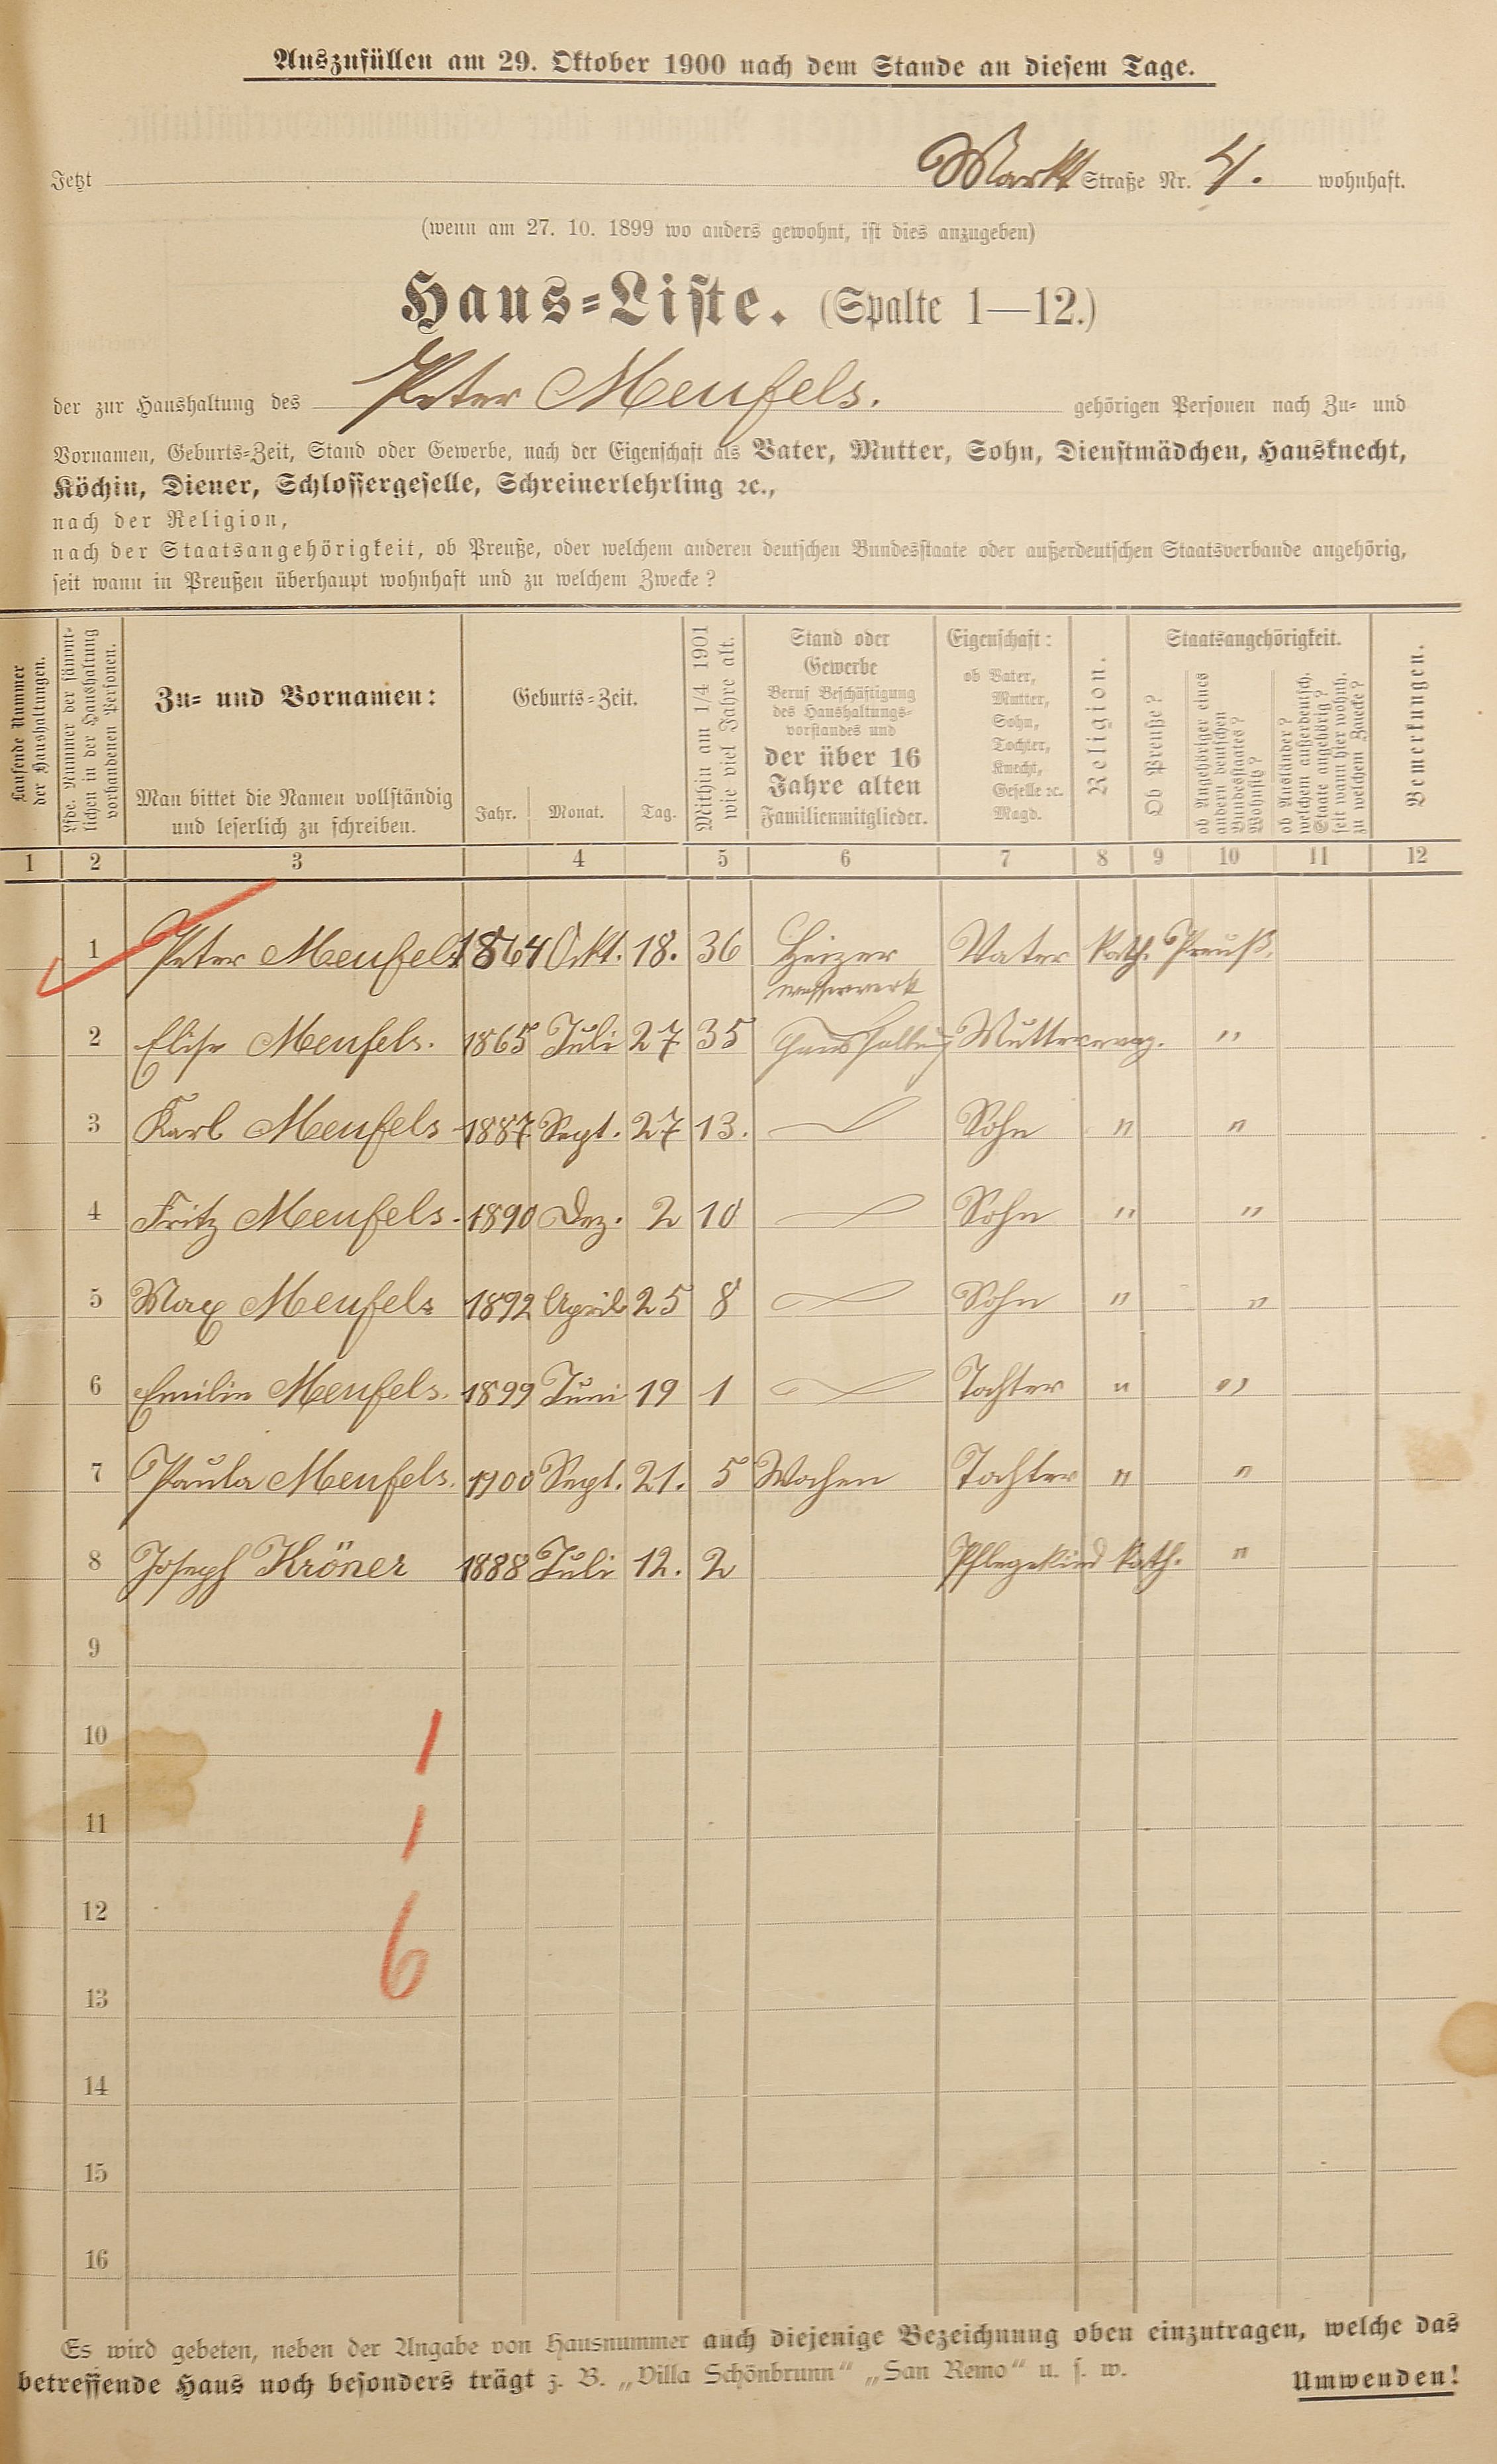 Auszufüllen am 29. Oktober 1900 nach dem Stande an diesem Tage.
Jetzt Markt Straße Nr. 4. wohnhaft.
(wenn am 27. 10. 1899 wo anders gewohnt, ist dies anzugeben)
Haus=Liste. (Spalte 1—12.)
der zur Haushaltung des Peter Meufels. gehörigen Personen nach Zu= und
Vornamen, Geburts=Zeit, Stand oder Gewerbe, nach der Eigenschaft als Vater, Mutter, Sohn, Dienstmädchen, Hausknecht,
Köchin, Diener, Schlossergeselle, Schreinerlehrling ꝛc.,
nach der Religion,
nach der Staatsangehörigkeit, ob Preuße, oder welchem anderen deutschen Bundesstaate oder außerdeutschen Staatsverbande angehörig,
seit wann in Preußen überhaupt wohnhaft und zu welchem Zwecke?
Laufende Nummer
der Haushaltungen.
Lfde. Nummer der sämmt=
lichen in der Haushaltung
vorhandenen Personen.
Zu= und Vornamen:
Man bittet die Namen vollständig
und leserlich zu schreiben.
Geburts=Zeit.
Jahr. Monat. Tag.
Mithin am 1/4 1901
wie viel Jahre alt.
Stand oder
Gewerbe
Beruf Beschäftigung
des Haushaltungs=
vorstandes und
der über 16
Jahre alten
Familienmitglieder.
Eigenschaft:
ob Vater,
Mutter,
Sohn,
Tochter,
Knecht,
Geselle ꝛc.
Magd.
Religion.
Staatsangehörigkeit.
Ob Preuße?
ob Angehöriger eines
andern deutschen
Bundesstaates?
Wohnsitz?
ob Ausländer?
welchem außerdeutsch.
Staate angehörig?
seit wann hier wohnh.
zu welchem Zwecke?
Bemerkungen.
1 2 3 4 5 6 7 8 9 10 11 12
1 Peter Meufels 1864 Okt. 18. 36 Heizer Vater kath. Preuß.
Wasserwerk
2 Elise Meufels. 1865 Juli 27 35 Haushaltung Mutter evang. "
3 Karl Meufels 1887. Sept. 27 13. Sohn " "
4 Fritz Meufels. 1890 Dez. 2 10 Sohn " "
5 Max Meufels 1892 April 25 8 Sohn " "
6 Emilie Meufels. 1899 Juni 19 1 Tochter " "
7 Paula Meufels. 1900 Sept. 21. 5 Wochen Tochter " "
8 Joseph Kröner 1888 Juli 12. 2 Pflegekind kath. "
9
10 1
11 1
12
6
13
14
15
16
Es wird gebeten, neben der Angabe von Hausnummer auch diejenige Bezeichnung oben einzutragen, welche das
betreffende Haus noch besonders trägt z. B. „Villa Schönbrunn“ „San Remo“ u. s. w.
Umwenden!